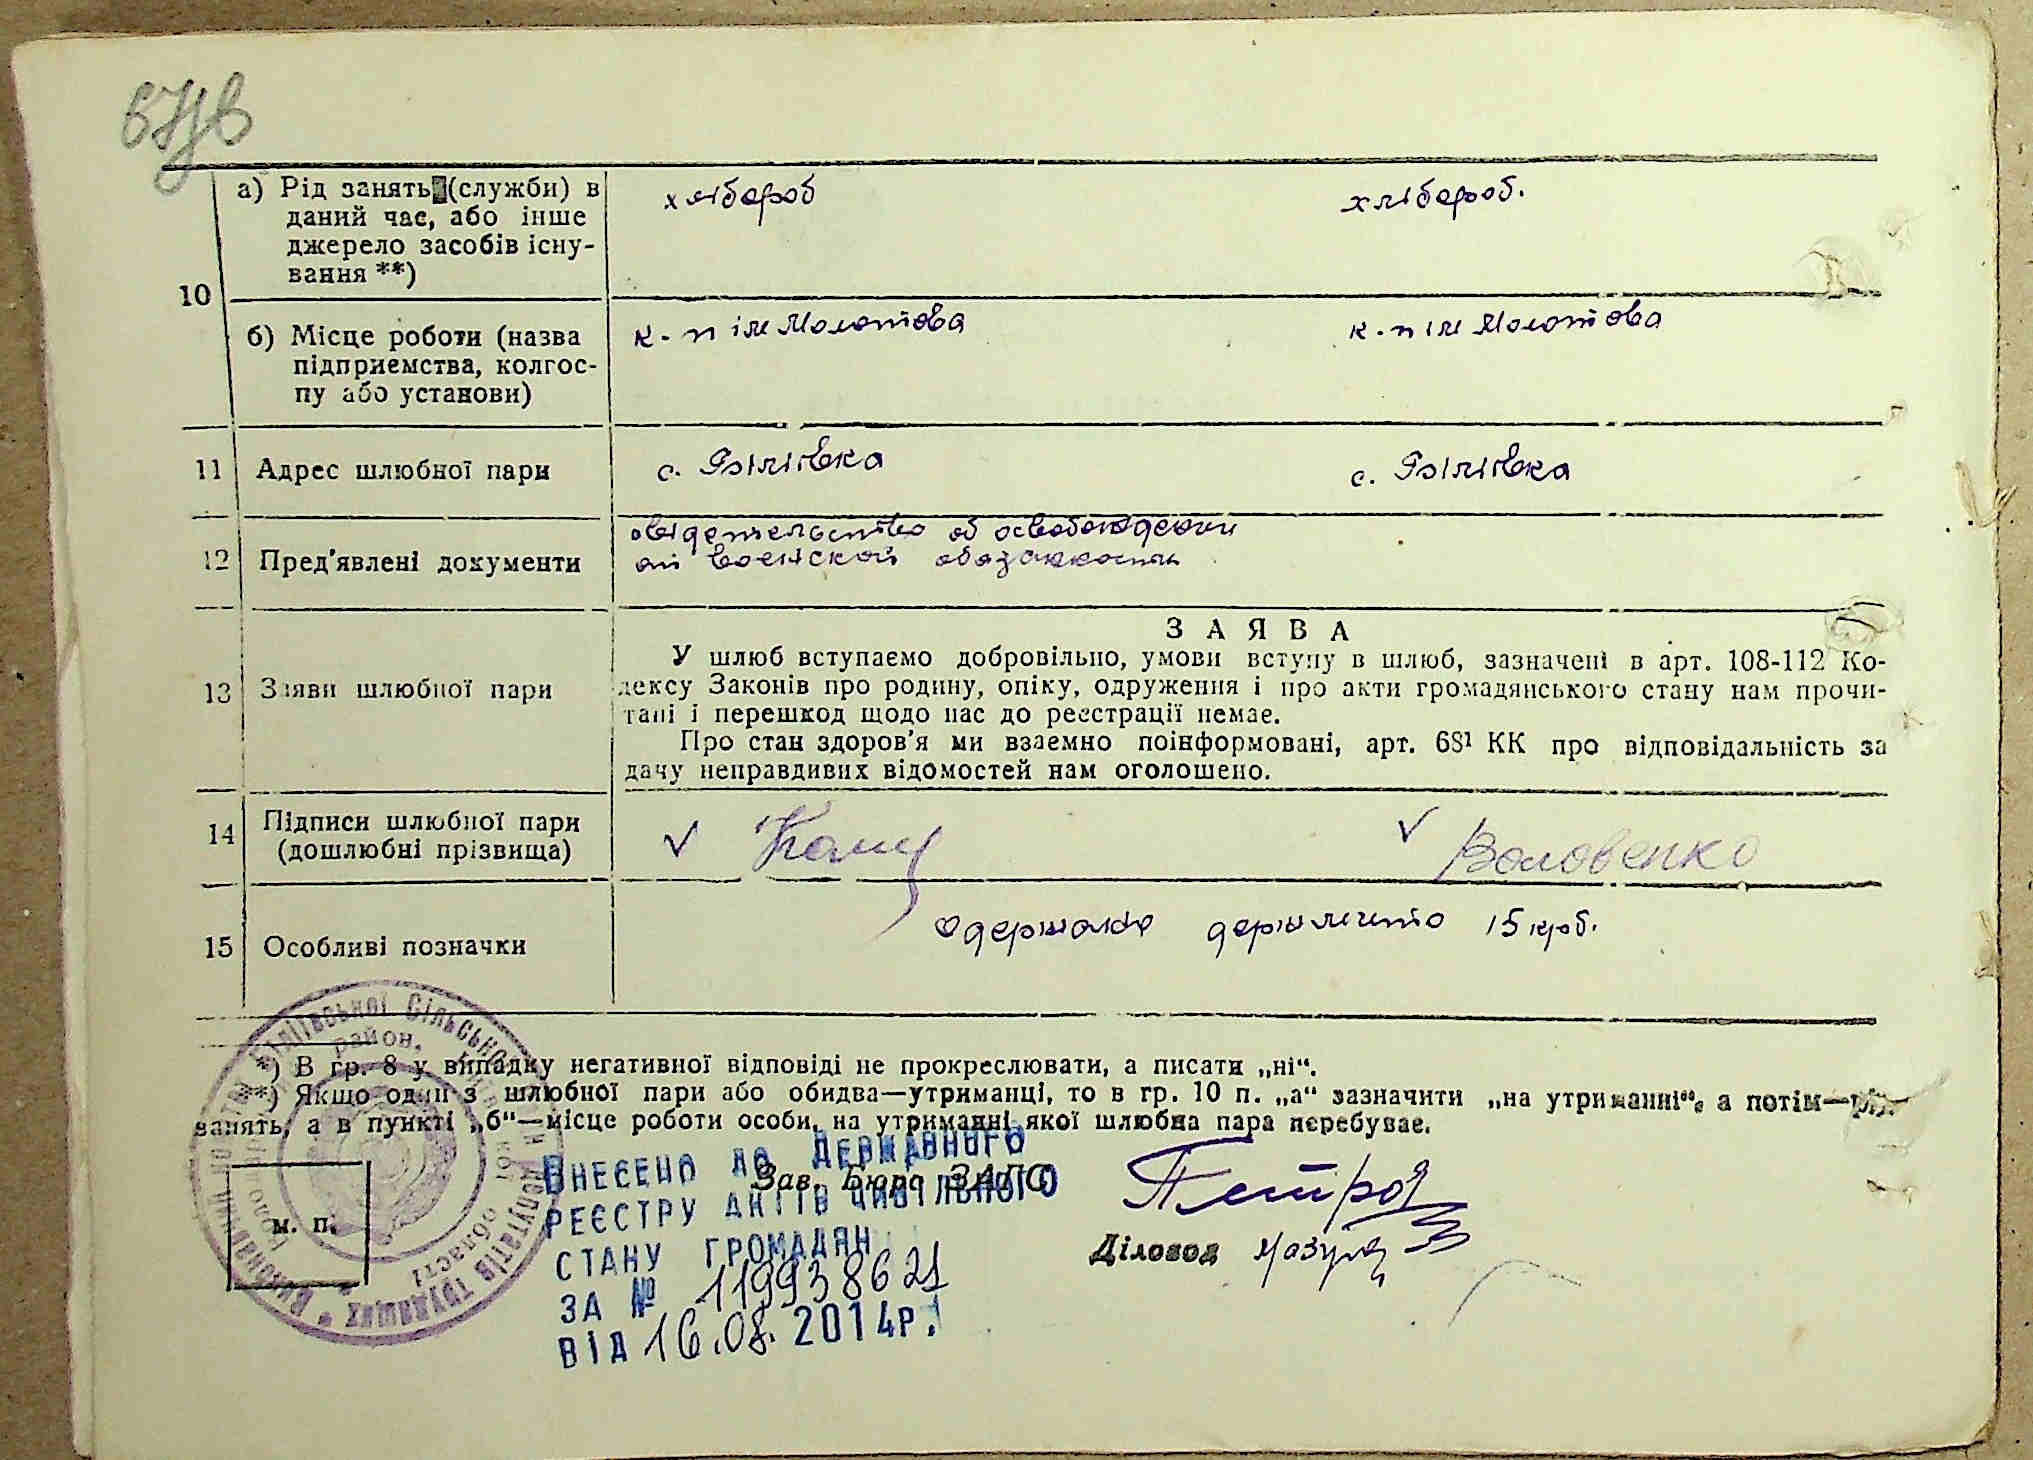 а) Рід занять (служби) в
даний час, або інше
джерело засобів існу-
вання **)
хлібороб
хлібороб.
10
б) Місце роботи (назва
підприємства, колгос-
пу або установи)
к-п ім Молотова
к-п ім Молотова
11 Адрес шлюбної пари
с. Біліївка
с. Біліївка
12 Пред'явлені документи
свідетельство об освобождении
от воинской обязанности
13 Заяви шлюбної пари
ЗАЯВА
У шлюб вступаємо добровільно, умови вступу в шлюб, зазначені в арт. 108-112 Ко-
дексу Законів про родину, опіку, одруження і про акти громадянського стану нам прочи-
тані і перешкод щодо нас до реєстрації немає.
Про стан здоров'я ми взаємно поінформовані, арт. 68¹ КК про відповідальність за
дачу неправдивих відомостей нам оголошено.
14 Підписи шлюбної пари
(дошлюбні прізвища)
Воловенко
15 Особливі позначки
одержано держмито 15 крб.
*) В гр. 8 у випадку негативної відповіді не прокреслювати, а писати „ні“.
**) Якщо один з шлюбної пари або обидва—утриманці, то в гр. 10 п. „а“ зазначити „на утриманні“, а потім—рід
занять, а в пункті „б“—місце роботи особи, на утриманні якої шлюбна пара перебуває.
Зав. Бюро ЗАГС
Діловод
м. п.
Виконавчий комітет Біліївської Сільської депутатів трудящих
район.
області
ВНЕСЕНО ДО ДЕРЖАВНОГО
РЕЄСТРУ АКТІВ ЦИВІЛЬНОГО
СТАНУ ГРОМАДЯН
ЗА № 119938621
ВІД 16.08.2014р.